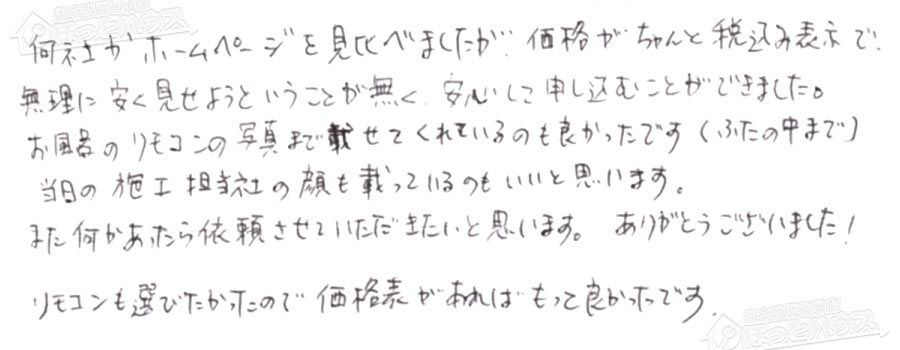 何社かホームページを見比べましたが、価格がちゃんと税込み表示で、
無理に安く見せようということが無く、安心して申し込むことができました。
お風呂のリモコンの写真まで載せてくれているのも良かったです(ふたの中まで)
当日の施工担当社の顔も載っているのもいいと思います。
また何かあったら依頼させていただきたいと思います。 ありがとうございました!
リモコンも選びたかったので価格表があればもっと良かったです。
ほっとハウス
ほっとハウス